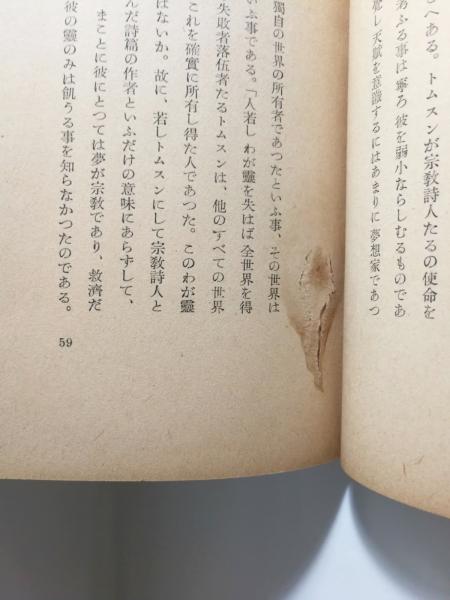 もへある。トムスンが宗教詩人たるの使命を
ふる事は寧ろ彼を弱小ならしむるものであ
し天賦を意識するにはあまりに夢想家であつ
獨自の世界の所有者であつたといふ事、その世界は
いふ事である。「人若しわが靈を失はば全世界を得
失敗者落伍者たるトムスンは、他のすべての世界
これを確實に所有し得た人であつた。このわが靈
はないか。故に、若しトムスンにして宗教詩人と
んだ詩篇の作者といふだけの意味にあらずして、
まことに彼にとつては夢が宗教であり、救濟だ
彼の靈のみは飢うる事を知らなかつたのである。
59